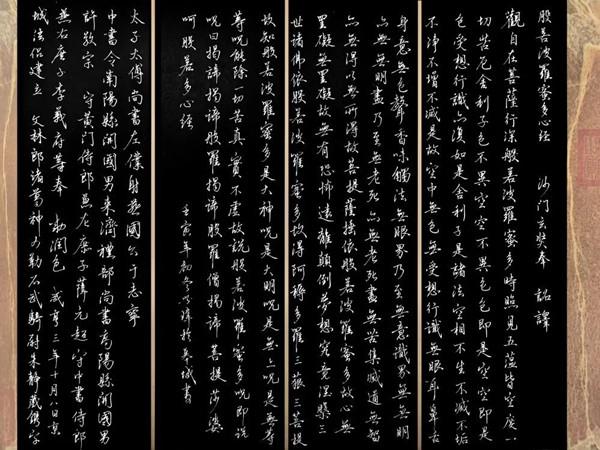 般若波羅蜜多心經 沙門玄奘奉 詔譯
觀自在菩薩行深般若波羅蜜多時照見五蕰皆空度一
切苦厄舍利子色不異空空不異色色即是空空即是
色受想行識亦復如是舍利子是諸法空相不生不滅不垢
不淨不增不減是故空中無色無受想行識無眼耳鼻舌
身意無色聲香味觸法無眼界乃至無意識界無無明
亦無無明盡乃至無老死亦無老死盡無苦集滅道無智
亦無得以無所得故菩提薩埵依般若波羅蜜多故心無
罣礙無罣礙故無有恐怖遠離顛倒夢想究竟涅槃三
世諸佛依般若波羅蜜多故得阿耨多羅三藐三菩提
故知般若波羅蜜多是大神咒是大明咒是無上咒是無等
等咒能除一切苦真實不虛故說般若波羅蜜多咒即說
咒曰揭諦揭諦般羅揭諦般羅僧揭諦 菩提莎婆
呵般若多心經
壬寅年初冬 於吳城書
太子太傅尚書左僕射燕國公于志寧
中書令南陽縣開國男來濟禮部尚書高陽縣開國男
許敬宗 守黃門侍郎兼左庶子薛元超守中書侍郎
兼右庶子李義府等奉 敕潤色 咸亨三年十二月八日京
城法侶建立 文林郎諸葛神力勒石武騎尉朱靜藏鐫字